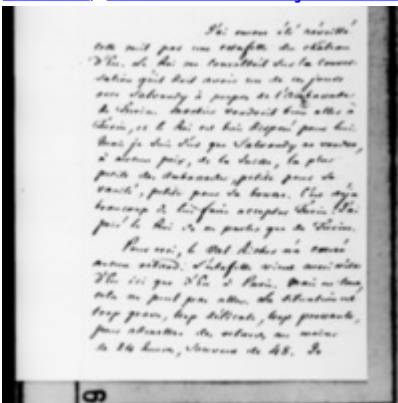 J'ai encore été réveillé
cette nuit par une estafette du château
d'Eu. Le Roi me consultoit sur la conver-
sation qu'il doit avoir un de ces jours
avec Salvandy à propos de l'Ambassade
de Turin. voudroit bien aller à
Turin, et le Roi est bien disposé pour lui.
Mais je suis sûr que Salvandy ne voudra,
à aucun prix, de la Suisse, la plus
petite des Ambassades, petite pour sa
vanité, petite pour sa bourse. C'est déjà
beaucoup de lui faire accepter Turin. J'ai
prié le Roi de ne parler que de Turin.
Pour moi, le Val Richer n'a causé
aucun retard. L'estafette vient aussi vite
d'Eu ici que d'Eu à Paris. Mais au fond,
cela ne peut pas aller. La situation est
trop grave, trop délicate, trop pressante,
pour admettre des retards, au moins
de 24 heures, souvent de 48. Je
6